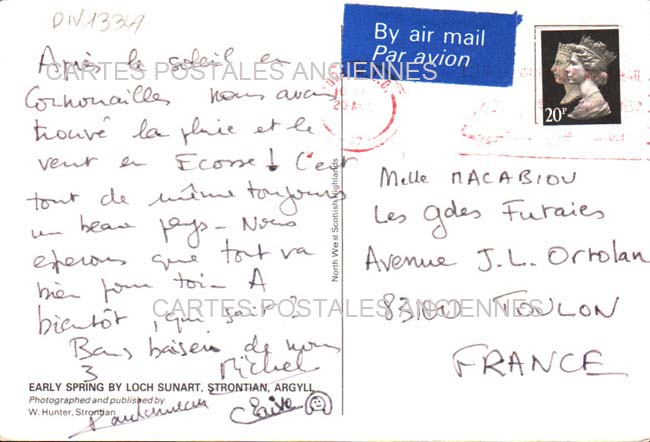 DIV1334
By air mail
Par avion
20P
CARTES POSTALES ANCIENNES
Après le soleil en
Cornouailles nous avons
trouvé la pluie et le
vent en Ecosse ! C'est
tout de même toujours
un beau pays - Nous
esperons que tout va
bien pour toi - A
bientôt, qui sait ?
Bons baisers de nous
3
Michel
Claire
Melle MACABIOU
Les gdes Futaies
Avenue J.L. Ortolan
83100 TOULON
FRANCE
CARTES POSTALES ANCIENNES
North West Scottish Highlands
EARLY SPRING BY LOCH SUNART, STRONTIAN, ARGYLL
Photographed and published by
W. Hunter, Strontian